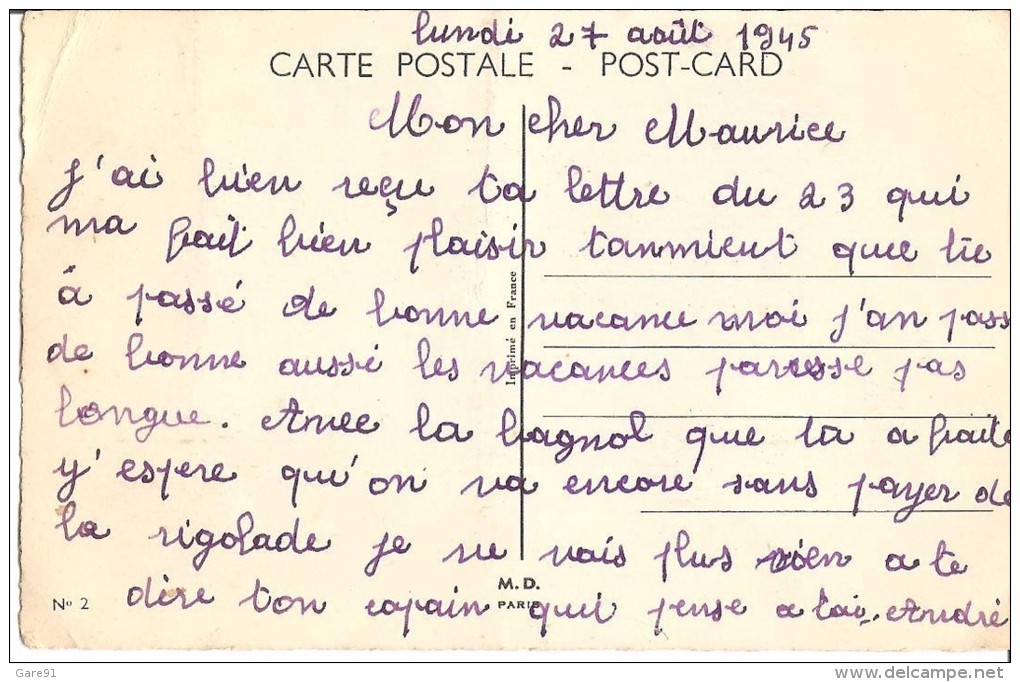 lundi 27 août 1945
CARTE POSTALE - POST-CARD
Mon cher Maurice
J'ai bien reçu ta lettre du 23 qui
ma fait bien plaisir tanmieut que tu
à passé de bonne vacance moi j'an pass
de bonne aussi les vacances paresse pas
longue. Avec la bagnol que tu a faite
y'espere qu'on va encore sans payer de
la rigolade je ne vais plus rien a te
dire ton copain qui pense a toi. André
Imprimé en France
M.D.
PARIS
No 2
Gare91
delcampe.net